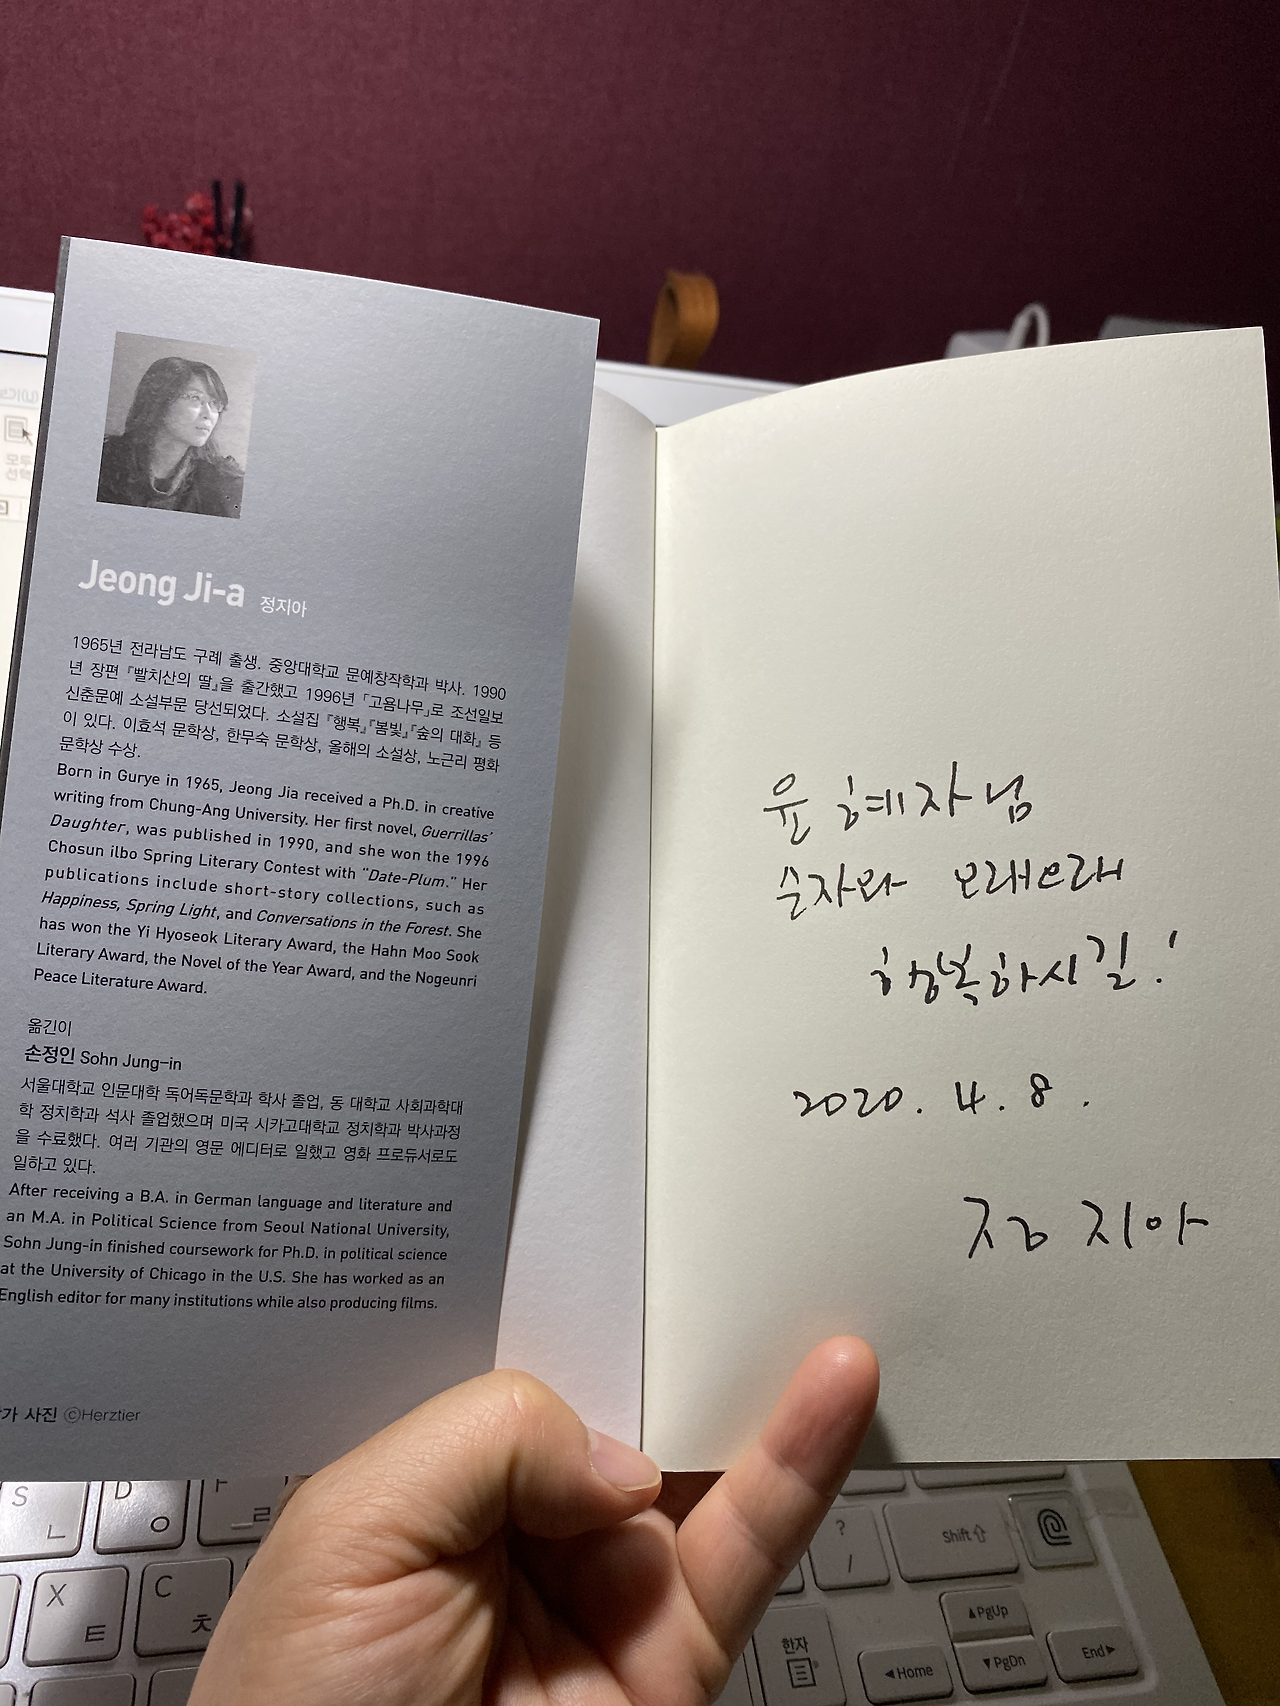 Jeong Ji-a 정지아
1965년 전라남도 구례 출생. 중앙대학교 문예창작학과 박사. 1990
년 장편 『빨치산의 딸』을 출간했고 1996년 「고욤나무」로 조선일보
신춘문예 소설부문 당선되었다. 소설집 『행복』 『봄빛』 『숲의 대화』 등
이 있다. 이효석 문학상, 한무숙 문학상, 올해의 소설상, 노근리 평화
문학상 수상.
Born in Gurye in 1965, Jeong Jia received a Ph.D. in creative
writing from Chung-Ang University. Her first novel, Guerrillas'
Daughter, was published in 1990, and she won the 1996
Chosun ilbo Spring Literary Contest with "Date-Plum." Her
publications include short-story collections, such as
Happiness, Spring Light, and Conversations in the Forest. She
has won the Yi Hyoseok Literary Award, the Hahn Moo Sook
Literary Award, the Novel of the Year Award, and the Nogeunri
Peace Literature Award.
옮긴이
손정인 Sohn Jung-in
서울대학교 인문대학 독어독문학과 학사 졸업, 동 대학교 사회과학대
학 정치학과 석사 졸업했으며 미국 시카고대학교 정치학과 박사과정
을 수료했다. 여러 기관의 영문 에디터로 일했고 영화 프로듀서로도
일하고 있다.
After receiving a B.A. in German language and literature and
an M.A. in Political Science from Seoul National University,
Sohn Jung-in finished coursework for Ph.D. in political science
at the University of Chicago in the U.S. She has worked as an
English editor for many institutions while also producing films.
가 사진 ⓒHerztier
윤혜자님
순자와 오래오래
행복하시길!
2020. 4. 8.
정지아
모두
선택
S ㄴ
D ㅇ
F ㄹ
X ㅌ
C ㅊ
? /
Shift
한자
PgUp
Home
PgDn
End